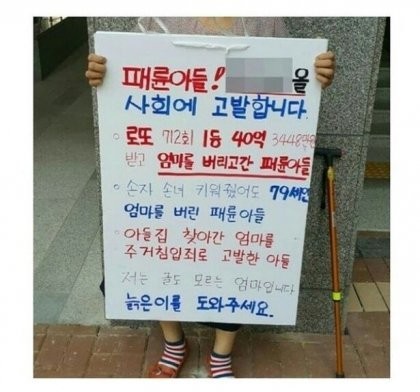 패륜아들! 을
사회에 고발합니다.
로또 712회 1등 40억 3448만원
받고 엄마를 버리고간 패륜아들
손자 손녀 키워줬어도 79세인
엄마를 버린 패륜아들
아들집 찾아간 엄마를
주거침입죄로 고발한 아들
저는 글도 모르는 엄마입니다
늙은이를 도와주세요.